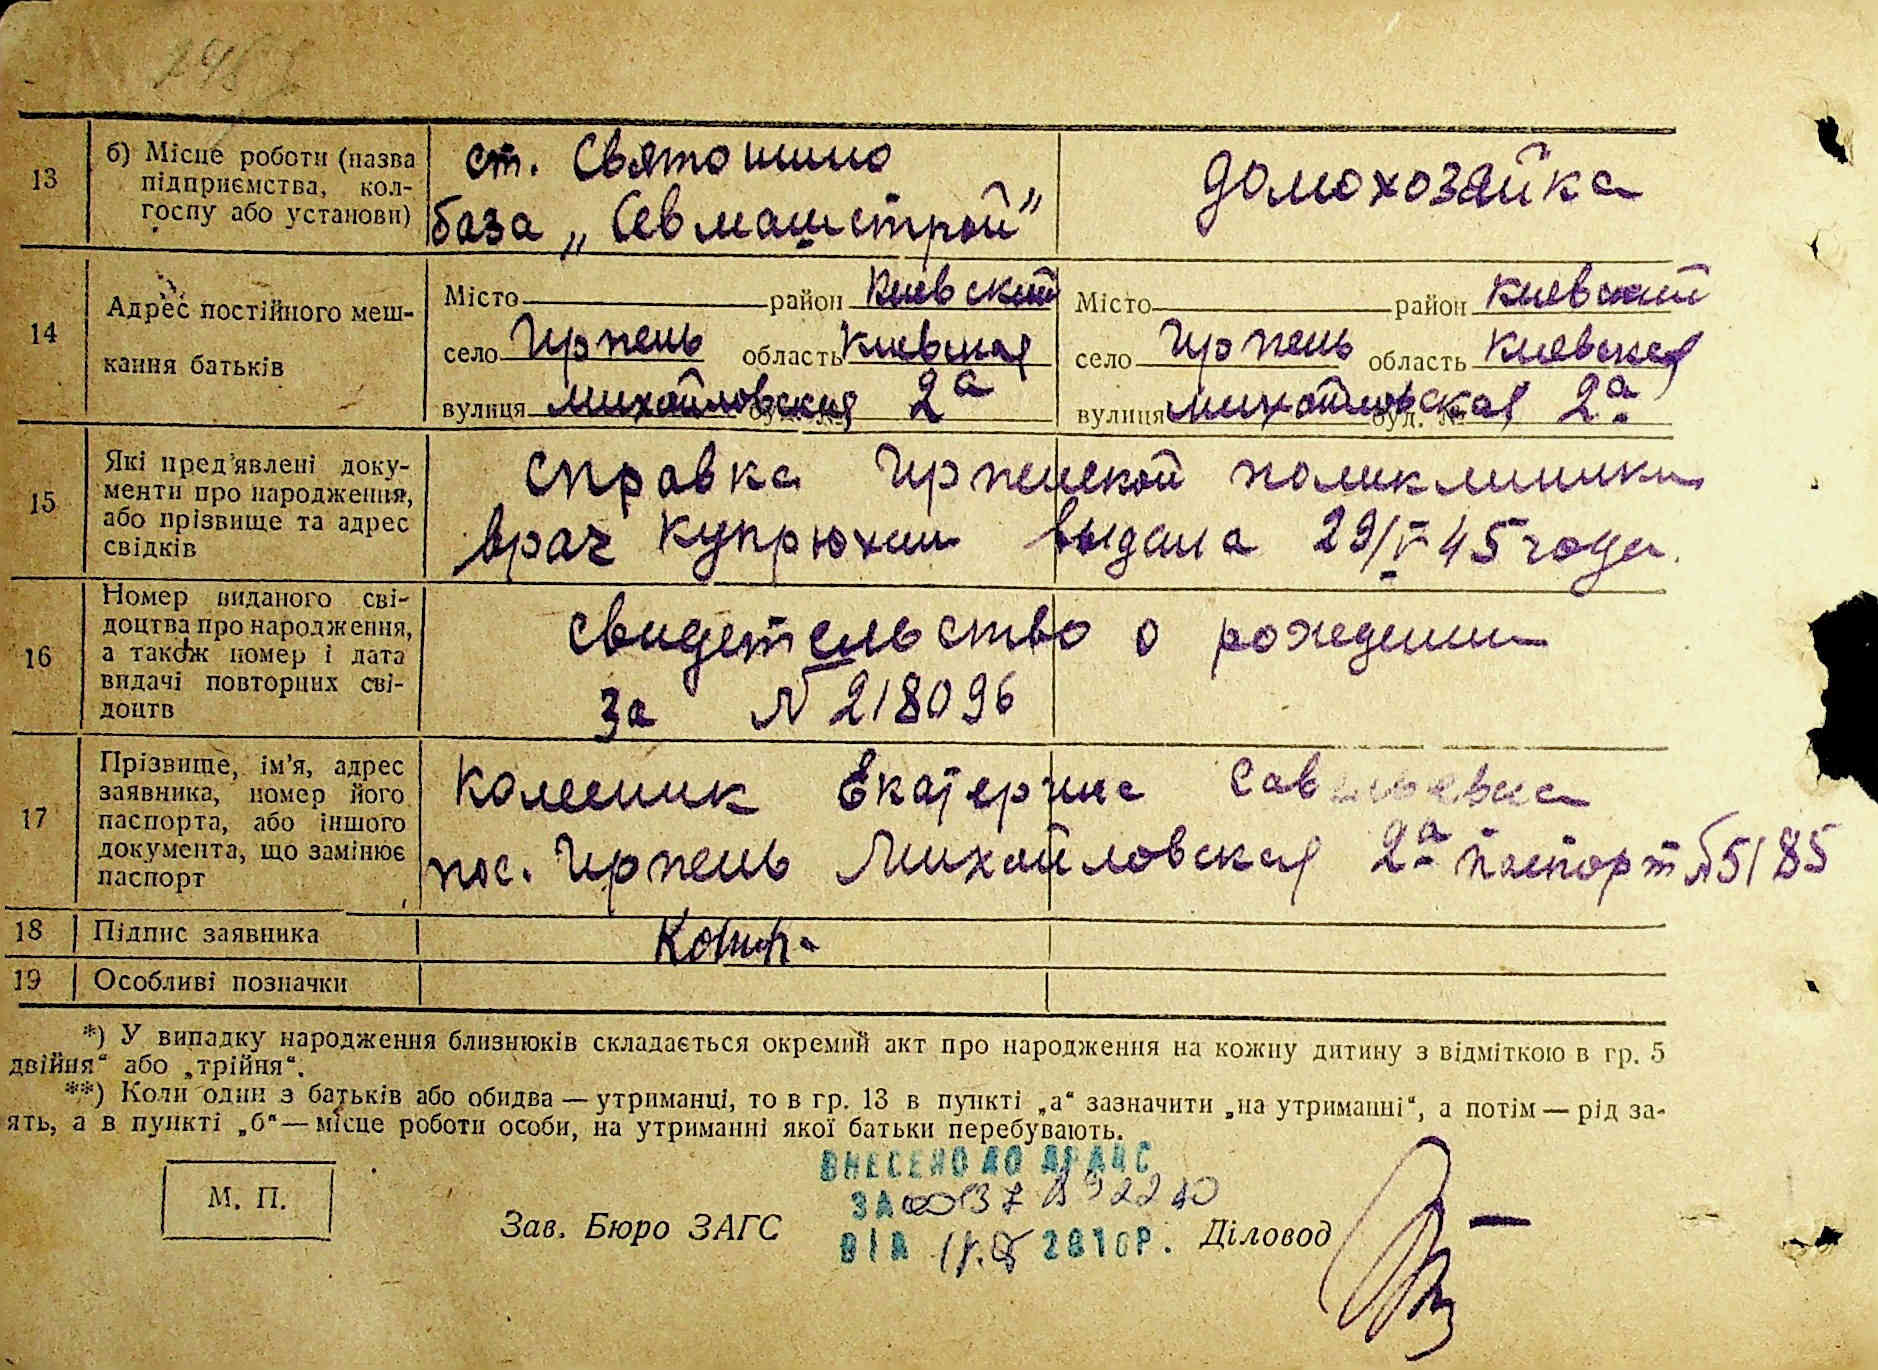 13
б) Місце роботи (назва
підприємства, кол-
госпу або установи)
ст. Святошино
база „Севмашстрой"
домохозяйка
14
Адрес постійного меш-
кання батьків
Місто район Киевский
село Ирпень область Киевская
вулиця Михайловская 2а
Місто район Киевский
село Ирпень область Киевская
вулиця Михайловская буд. № 2а
15
Які пред'явлені доку-
менти про народження,
або прізвище та адрес
свідків
справка Ирпенской поликлиники
врач Купрюхин выдана 29/V 45 года.
16
Номер виданого сві-
доцтва про народження,
а також номер і дата
видачі повторних сві-
доцтв
свидетельство о рождении
за № 218096
17
Прізвище, ім'я, адрес
заявника, номер його
паспорта, або іншого
документа, що замінює
паспорт
Колесник Екатерина Савельевна
пос. Ирпень Михайловская 2а паспорт №5185
18
Підпис заявника
19
Особливі позначки
*) У випадку народження близнюків складається окремий акт про народження на кожну дитину з відміткою в гр. 5
двійня“ або „трійня“.
**) Коли один з батьків або обидва — утриманці, то в гр. 13 в пункті „а“ зазначити „на утриманні“, а потім — рід за-
ять, а в пункті „б“ — місце роботи особи, на утриманні якої батьки перебувають.
ВНЕСЕНО ДО ДРАЦС
М. П.
ЗА
Зав. Бюро ЗАГС
ВІД 2010Р.
Діловод